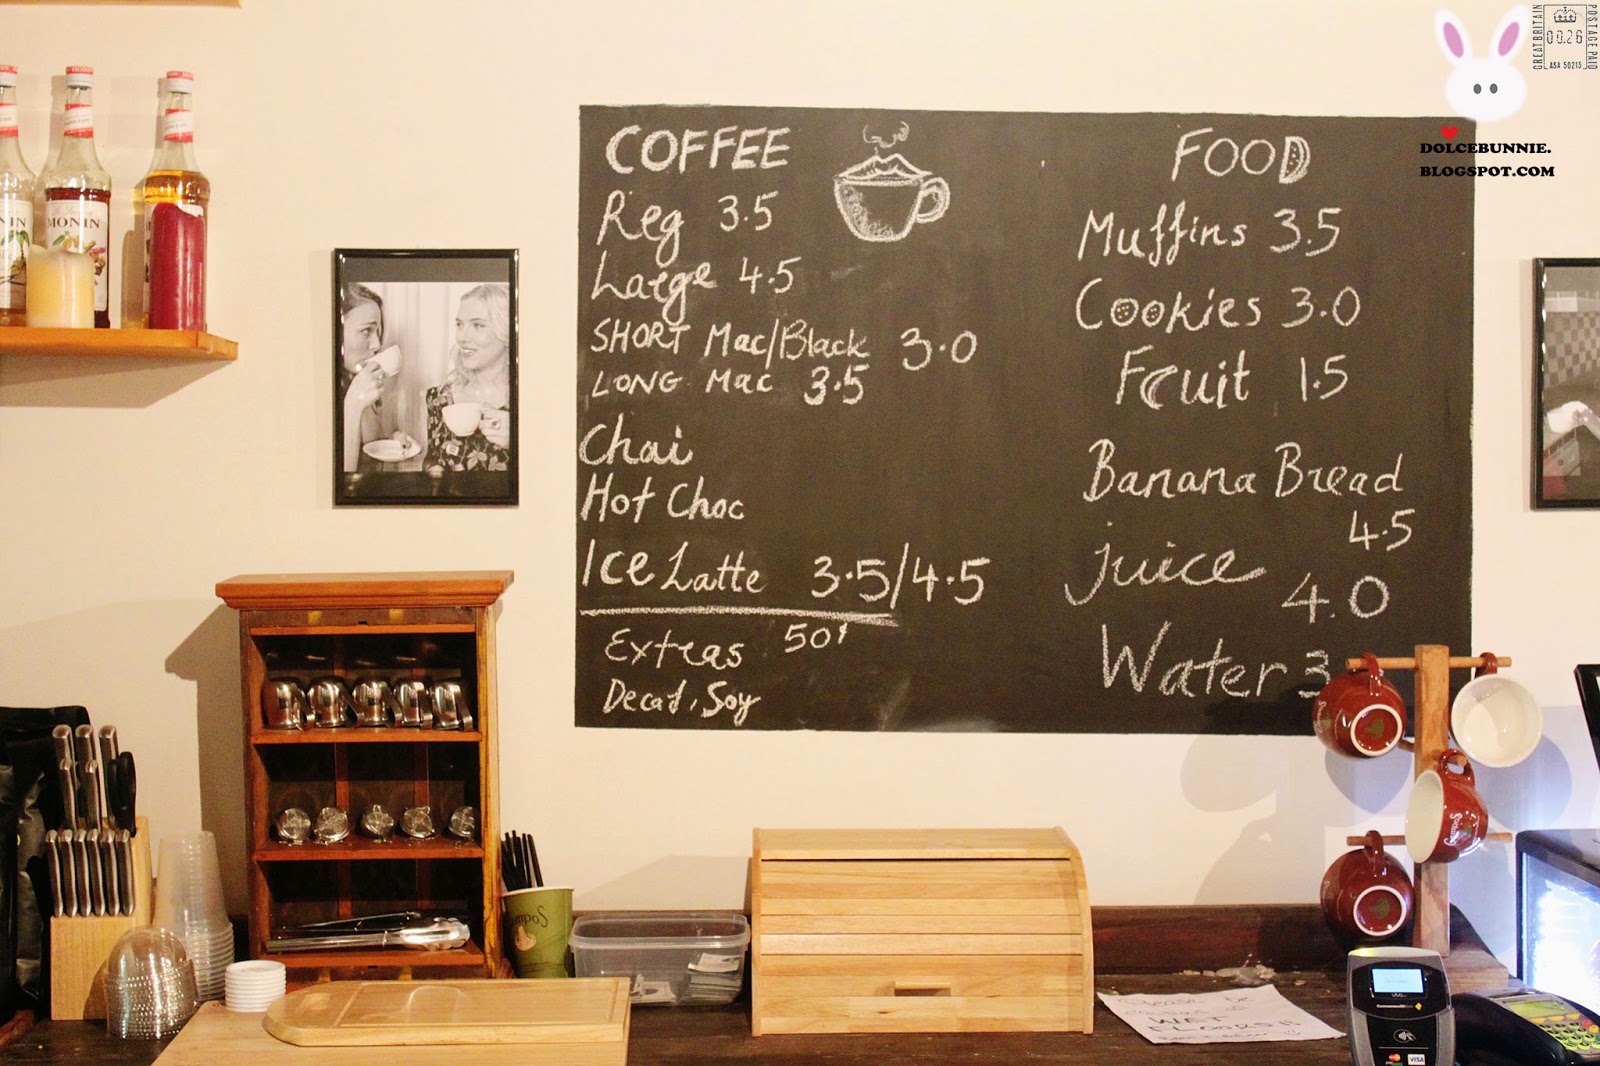 COFFEE
Reg 3.5
Large 4.5
SHORT Mac/Black 3.0
LONG Mac 3.5
Chai
Hot Choc
Ice Latte 3.5/4.5
Extras 50¢
Decaf, Soy
FOOD
Muffins 3.5
Cookies 3.0
Fruit 1.5
Banana Bread
4.5
juice
4.0
Water 3
DOLCEBUNNIE.
BLOGSPOT.COM
GREAT BRITAIN
00.26
ASA 50213
POSTAGE PAID
MONIN
Please be
WET
FLOORS!!
VISA